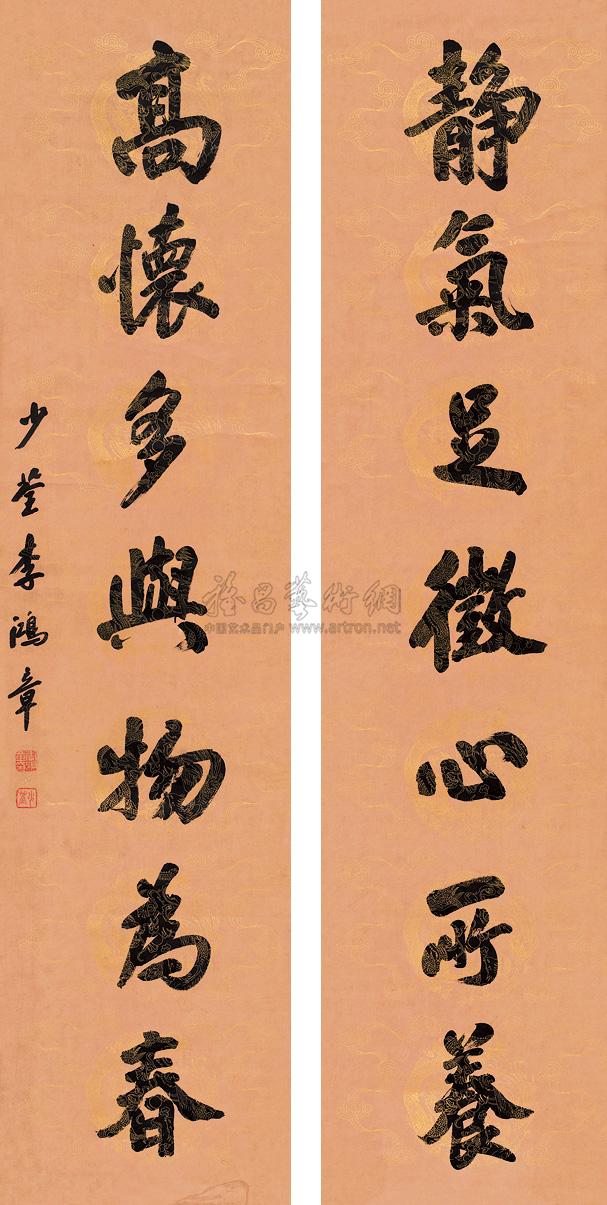 靜氣足徵心所養
高懷多與物為春
少荃李鴻章
雅昌藝術網
中国艺术品门户 www.artron.net